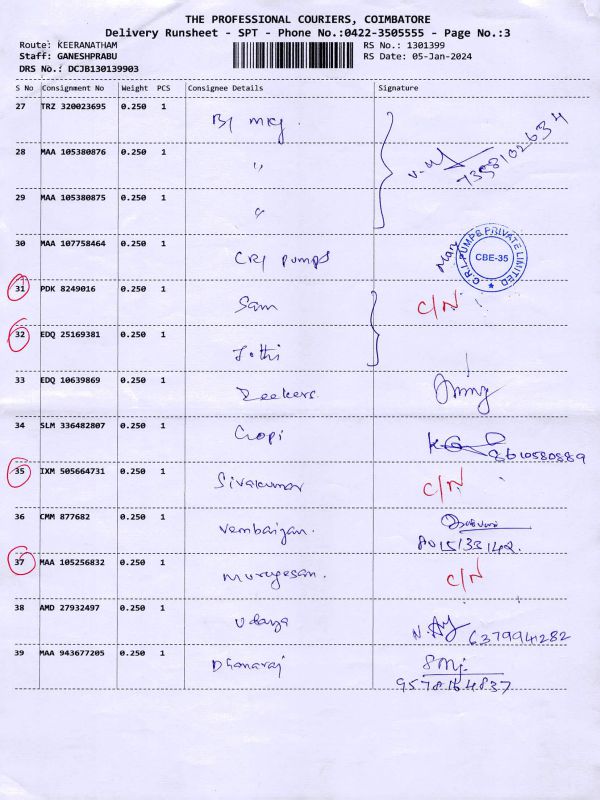 THE PROFESSIONAL COURIERS, COIMBATORE
Delivery Runsheet - SPT - Phone No.:0422-3505555 - Page No.:3
Route: KEERANATHAM RS No.: 1301399
Staff: GANESHPRABU RS Date: 05-Jan-2024
DRS No.: DCJB130139903
S No Consignment No Weight PCS Consignee Details Signature
27 TRZ 320023695 0.250 1
28 MAA 105380876 0.250 1 " 7358102634
29 MAA 105380875 0.250 1 "
30 MAA 107758464 0.250 1 CRI Pumps C.R.I. PUMPS PRIVATE LIMITED CBE-35
31 PDK 8249016 0.250 1 Sam C/N
32 EDQ 25169381 0.250 1 Jothi
33 EDQ 10639869 0.250 1 Zeekers
34 SLM 336482807 0.250 1 Gopi 8610580889
35 IXM 505664731 0.250 1 Sivakumar C/N
36 CMM 877682 0.250 1 Vembaiyan. 8015133142.
37 MAA 105256832 0.250 1 Murugesan. C/N
38 AMD 27932497 0.250 1 Udaya 6379941282
39 MAA 943677205 0.250 1 Dhanaraj 9578164837